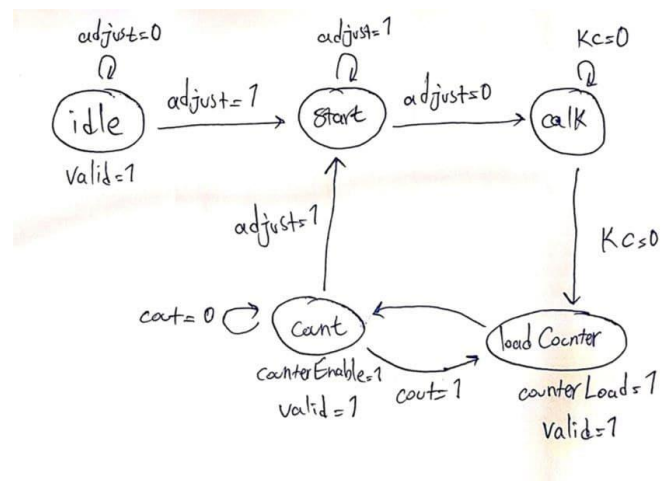 adjust=0
adjust=1
Kc=0
idle
adjust=1
start
adjust=0
calK
valid=1
adjust=1
Kc=0
cout=0
Cont
load Counter
counterEnable=1
valid=1
cout=1
counterLoad=1
valid=1